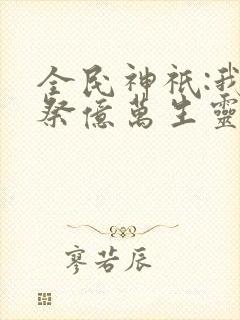 全民神祇:我
祭億萬生靈
寥若辰